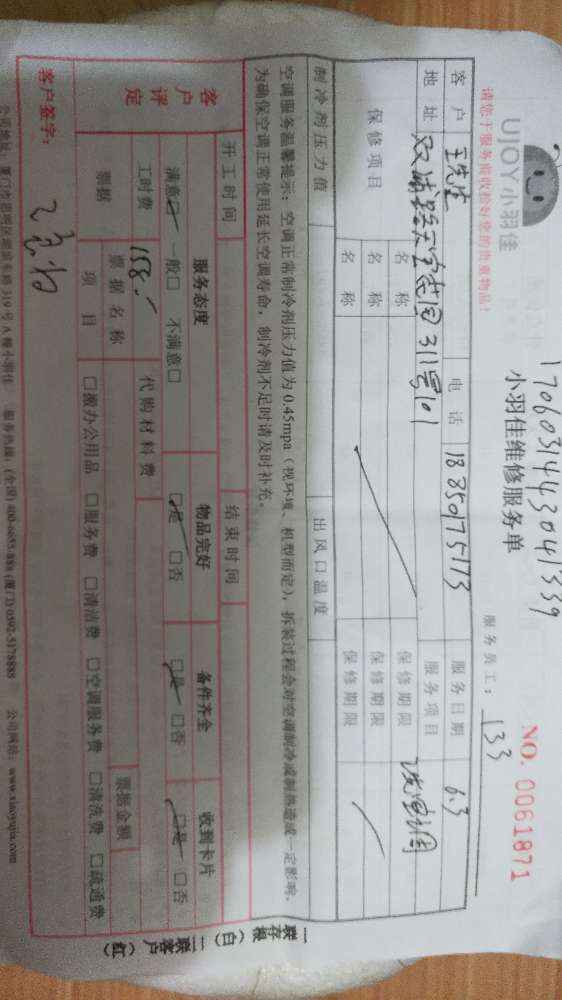 17060314430041339
UJOY小羽佳
小羽佳维修服务单
NO. 0061871
请您于服务前收拾好您的贵重物品！
服务员工：133
客户 王先生 电话 18350975173 服务日期 6.3
地址 311号101 服务项目
保修项目 名称 保修期限
名称 保修期限
名称 保修期限
制冷剂压力值 出风口温度
空调服务温馨提示：空调正常制冷剂压力值为0.45mpa（视环境、机型而定），拆装过程会对空调制冷或制热造成一定影响，
为确保空调正常使用延长空调寿命，制冷剂不足时请及时补充。
开工时间 结束时间
客户评定 服务态度 物品完好 备件齐全 收到卡片
满意☑ 一般□ 不满意□ ☑是 □否 ☑是 □否 ☑是 □否
工时费 158 代购材料费
票据 票据名称 票据金额
项目 □搬办公用品 □服务费 □清洁费 □空调服务费 □清洗费 □疏通费
客户签字：
一联存根（白） 二联客户（红）
公司地址：厦门市思明区湖滨东路319号A幢小羽佳 服务热线：(全国)400-6655-888 (厦门)0592-5178888 公司网站：www.xiaoyujia.com